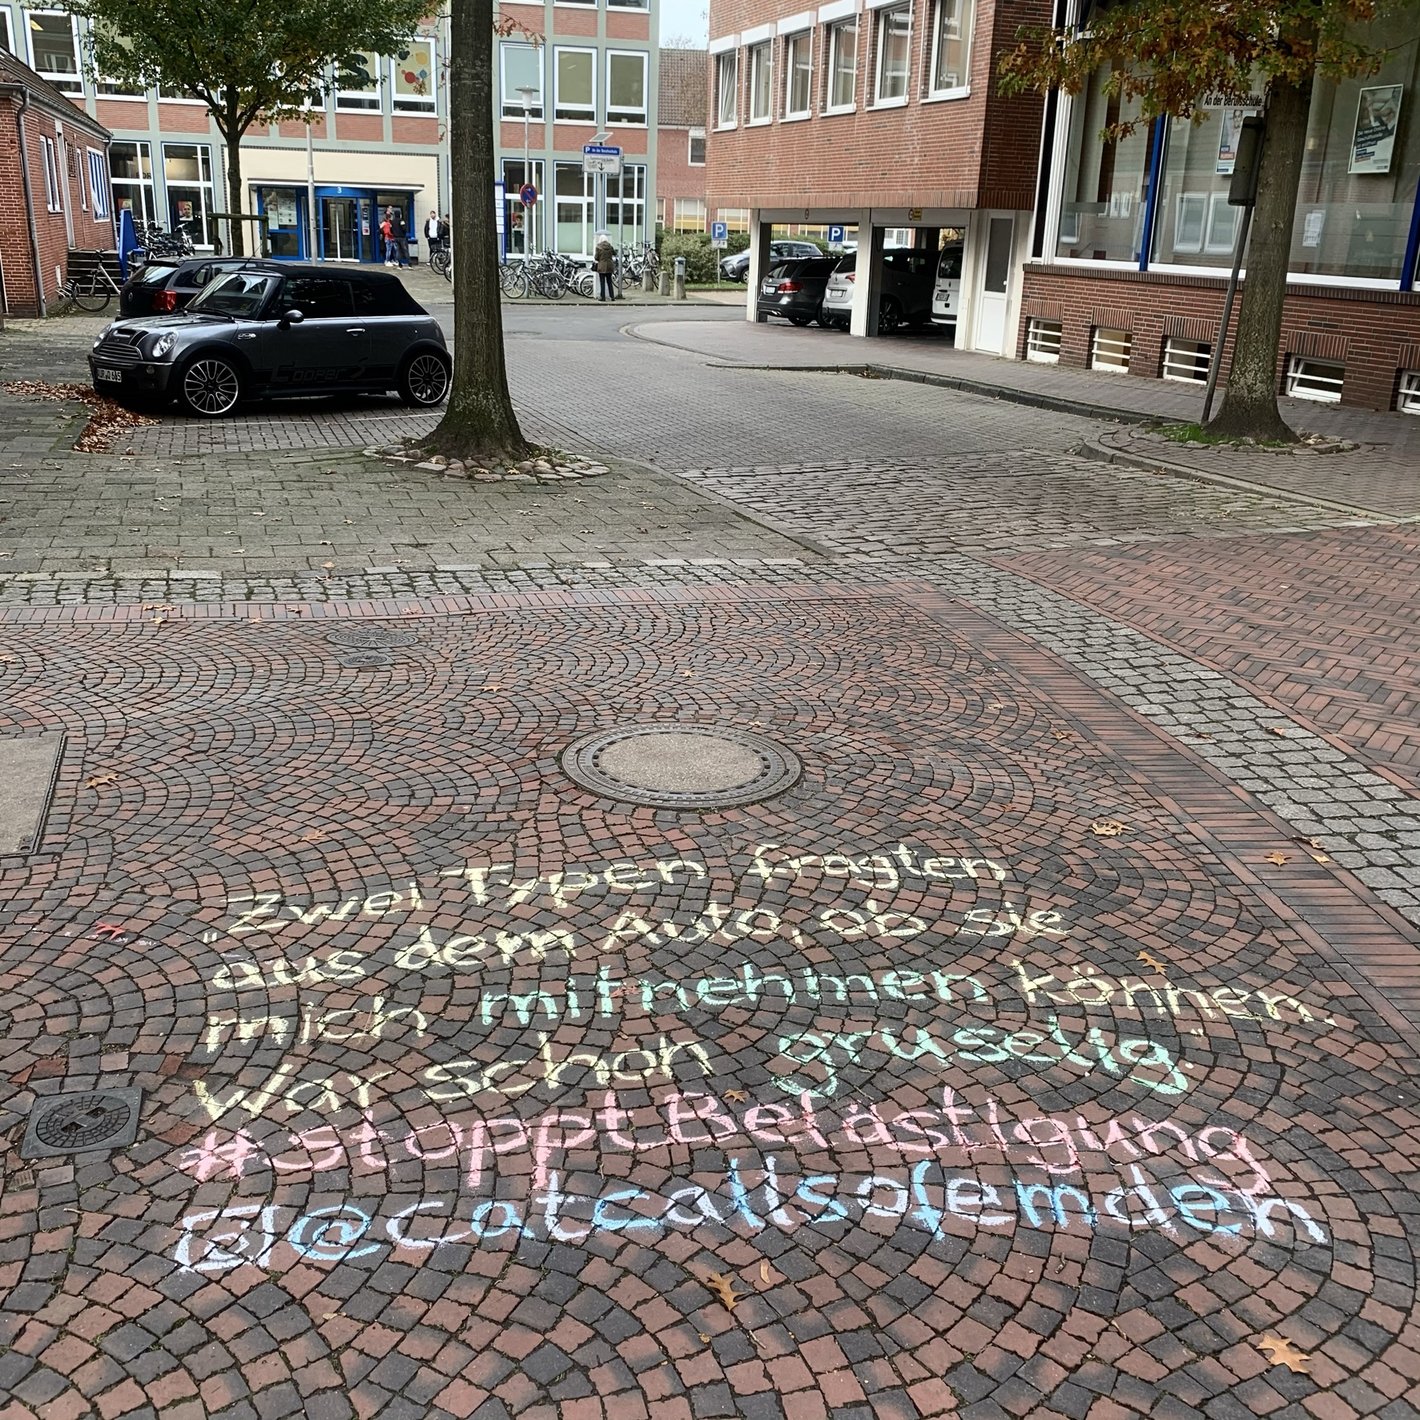 An der Berufsschule
P
P
P
3
Cooper S
„Zwei Typen fragten
aus dem Auto, ob sie
mich mitnehmen können.
War schon gruselig.
#stoppt Belästigung
@catcallsofemden